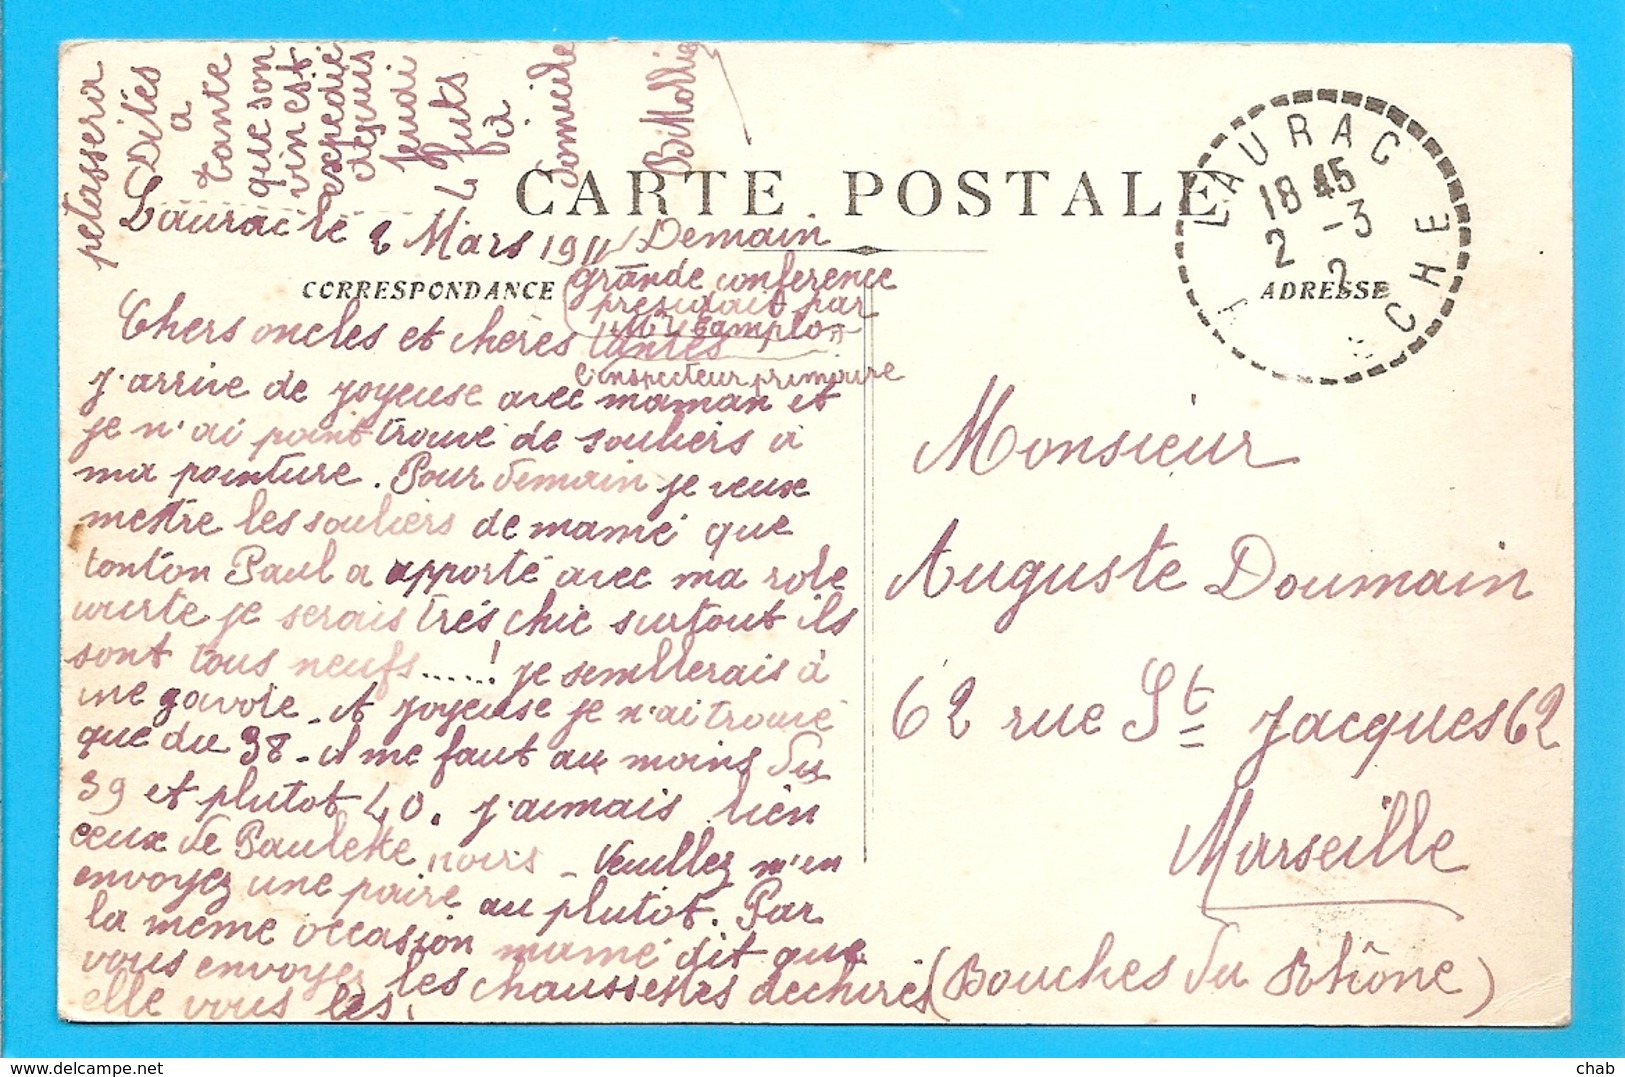 petassera
Dites
a
tante
que son
vin est
expedié
depuis
Jeudi
2 futs
à
CARTE POSTALE
Laurac le 2 Mars 1911
Demain
grande conference
presidait par
l'inspecteur primaire
CORRESPONDANCE
ADRESSE
LAURAC
18 45
2 -3
CHE
Chers oncles et chères tantes
J'arrive de joyeuse avec maman et
je n'ai point trouvé de souliers à
ma pointure. Pour demain je veux
mettre les souliers de mamé que
tonton Paul a apporté avec ma robe
verte je serais très chic surtout ils
sont tous neufs.....! je semblerais à
une gavote - et joyeuse je n'ai trouvé
que du 38 - il me faut au moins du
39 et plutot 40. j'aimais bien
ceux de Paulette noirs - Veuillez m'en
envoyez une paire au plutot. Par
la même occasion mamé dit que
vous envoyez les chaussettes dechirés
elle vous les
Monsieur
Auguste Doumain
62 rue St Jacques 62
Marseille
(Bouches du Rhône)
delcampe.net
chab